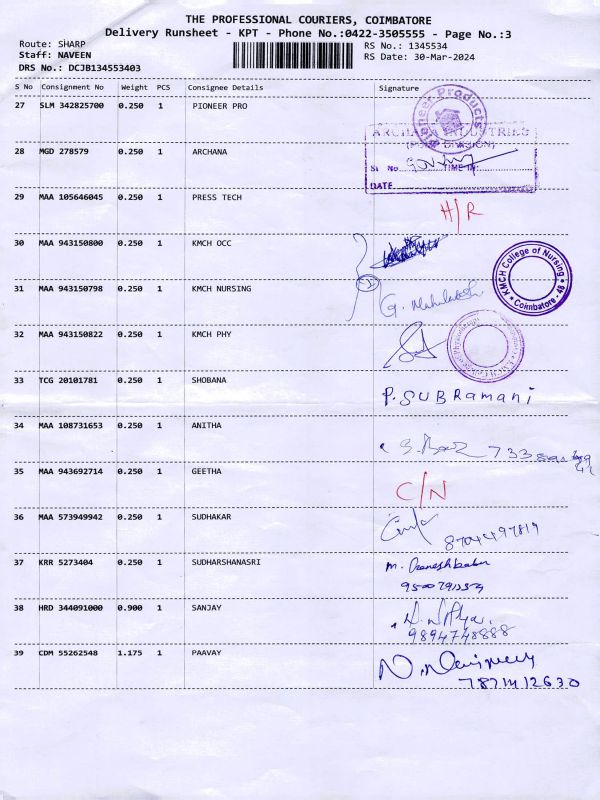 THE PROFESSIONAL COURIERS, COIMBATORE
Delivery Runsheet - KPT - Phone No.:0422-3505555 - Page No.:3
Route: SHARP
RS No.: 1345534
Staff: NAVEEN
RS Date: 30-Mar-2024
DRS No.: DCJB134553403
S No Consignment No Weight PCS Consignee Details Signature
27 SLM 342825700 0.250 1 PIONEER PRO
Pioneer Products
ARCHANA INDUSTRIES
28 MGD 278579 0.250 1 ARCHANA
Sl No. TIME IN:
DATE
29 MAA 105646045 0.250 1 PRESS TECH
H/R
30 MAA 943150800 0.250 1 KMCH OCC
31 MAA 943150798 0.250 1 KMCH NURSING
KMCH College of Nursing
Coimbatore - 48
32 MAA 943150822 0.250 1 KMCH PHY
33 TCG 20101781 0.250 1 SHOBANA
P. SUBRamani
34 MAA 108731653 0.250 1 ANITHA
35 MAA 943692714 0.250 1 GEETHA
C/N
36 MAA 573949942 0.250 1 SUDHAKAR
37 KRR 5273404 0.250 1 SUDHARSHANASRI
38 HRD 344091000 0.900 1 SANJAY
9894748888
39 CDM 55262548 1.175 1 PAAVAY
7871412630